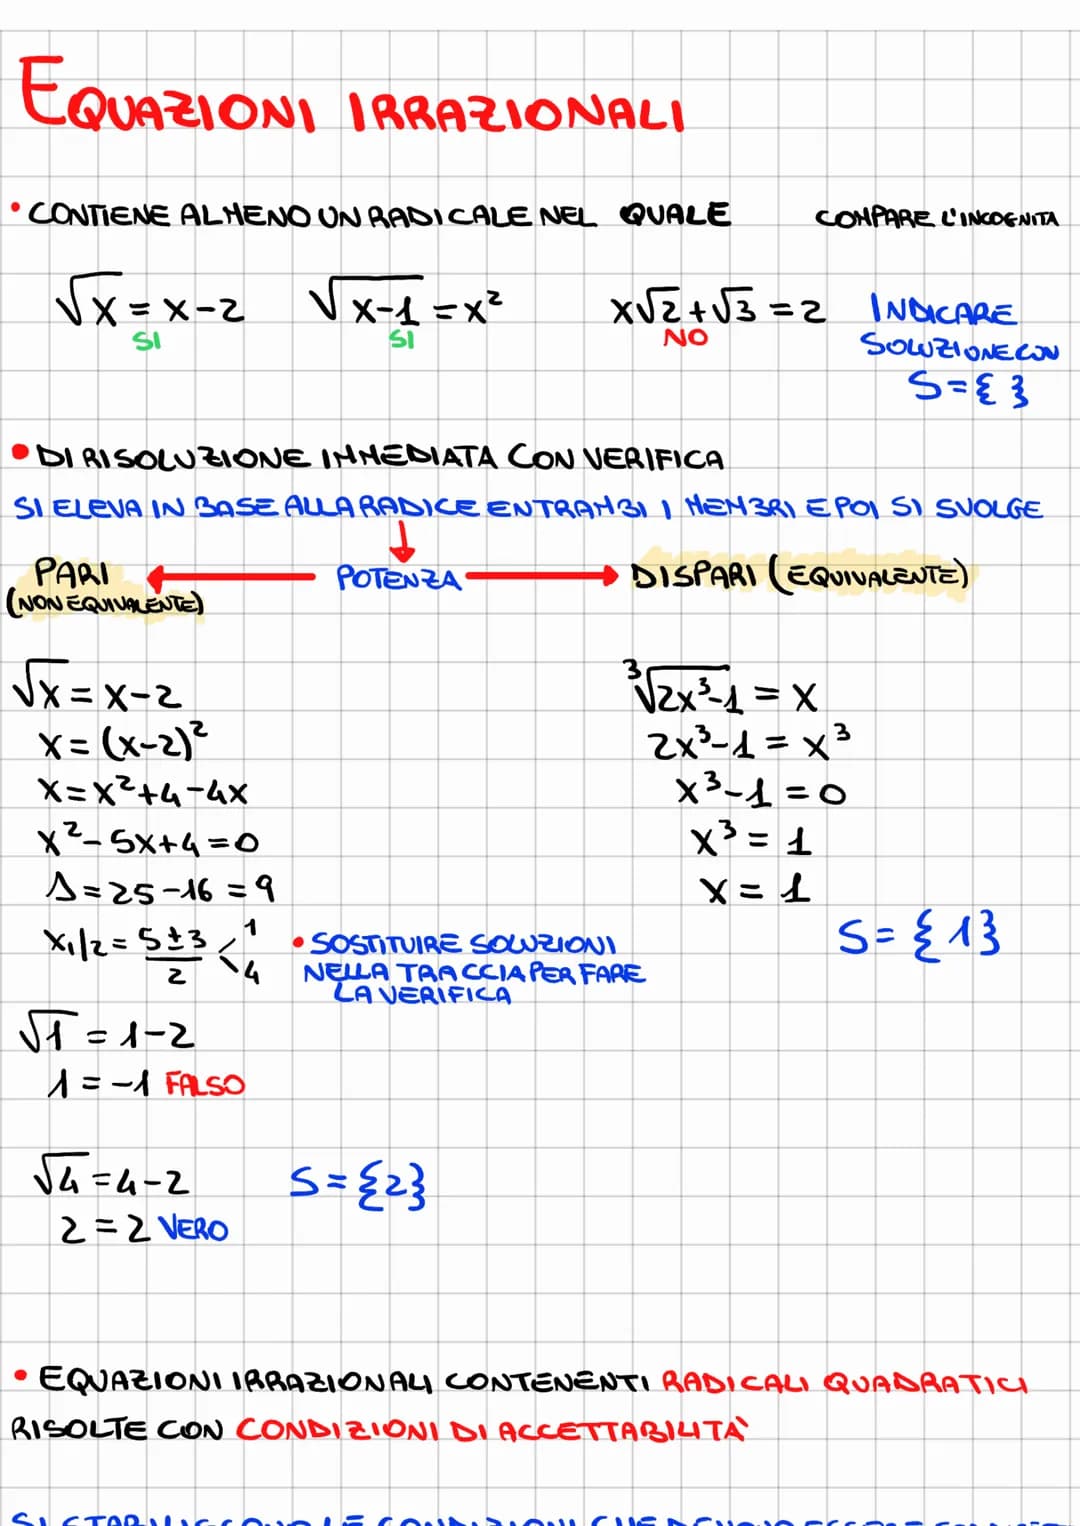 EQUAZIONI IRRAZIONALI
• CONTIENE ALMENO UN RADICALE NEL QUALE COMPARE L'INCOGNITA
√x = x-2 √x-1 = x² x√2+√3 = 2 INDICARE
SI SI NO SOLUZIONE CON
S={ }
• DI RISOLUZIONE IMMEDIATA CON VERIFICA
SI ELEVA IN BASE ALLA RADICE ENTRAMBI I MEMBRI E POI SI SVOLGE
PARI ← POTENZA → DISPARI (EQUIVALENTE)
(NON EQUIVALENTE)
√x = x-2
x = (x-2)²
x = x²+4-4x
x²-5x+4=0
Δ=25-16=9
x₁/₂ = 5±3/2 < 1 4
• SOSTITUIRE SOLUZIONI
NELLA TRACCIA PER FARE
LA VERIFICA
√1 = 1-2
1 = -1 FALSO
√4 = 4-2
2 = 2 VERO
S={2}
³√2x³-1 = x
2x³-1 = x³
x³-1 = 0
x³ = 1
x = 1
S={1}
• EQUAZIONI IRRAZIONALI CONTENENTI RADICALI QUADRATICI
RISOLTE CON CONDIZIONI DI ACCETTABILITÀ